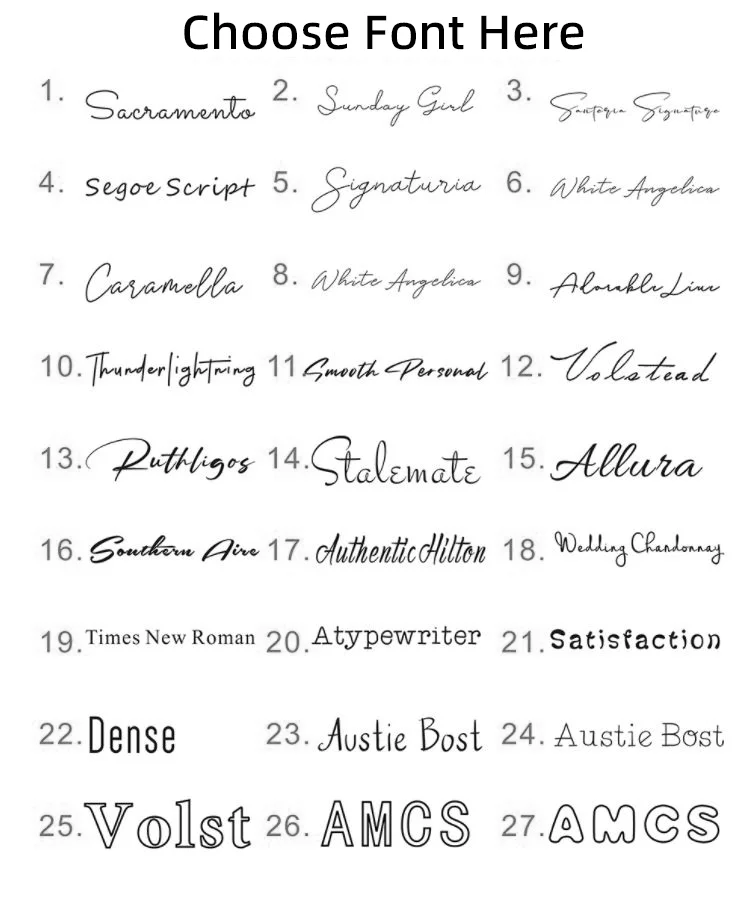 Choose Font Here
1. Sacramento 2. Sunday Girl 3. Santeria Signature
4. Segoe Script 5. Signaturia 6. White Angelica
7. Caramella 8. White Angelica 9. Adorable Line
10. Thunderlightning 11 Smooth Personal 12. Volstead
13. Ruthligos 14. Stalemate 15. Allura
16. Southern Aire 17. Authentic Hilton 18. Wedding Chardonnay
19. Times New Roman 20. Atypewriter 21. Satisfaction
22. Dense 23. Austie Bost 24. Austie Bost
25. Volst 26. AMCS 27. AMCS